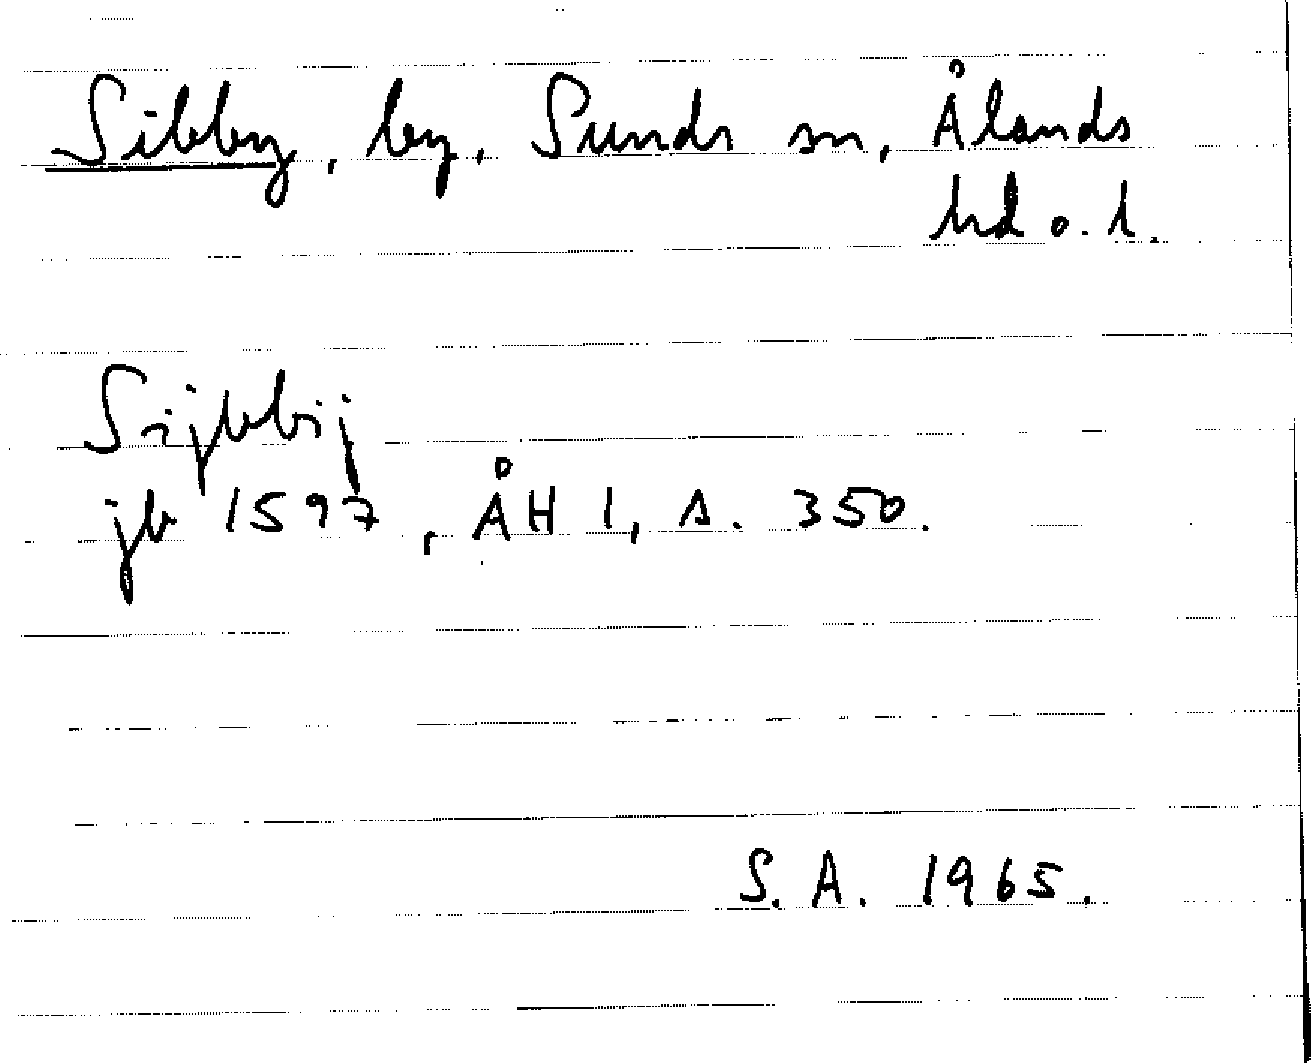 Sibby, by, Sunds sn, Ålands
hd o. l.
Sijbbij
jb 1597, ÅH 1, s. 350.
S. A. 1965.